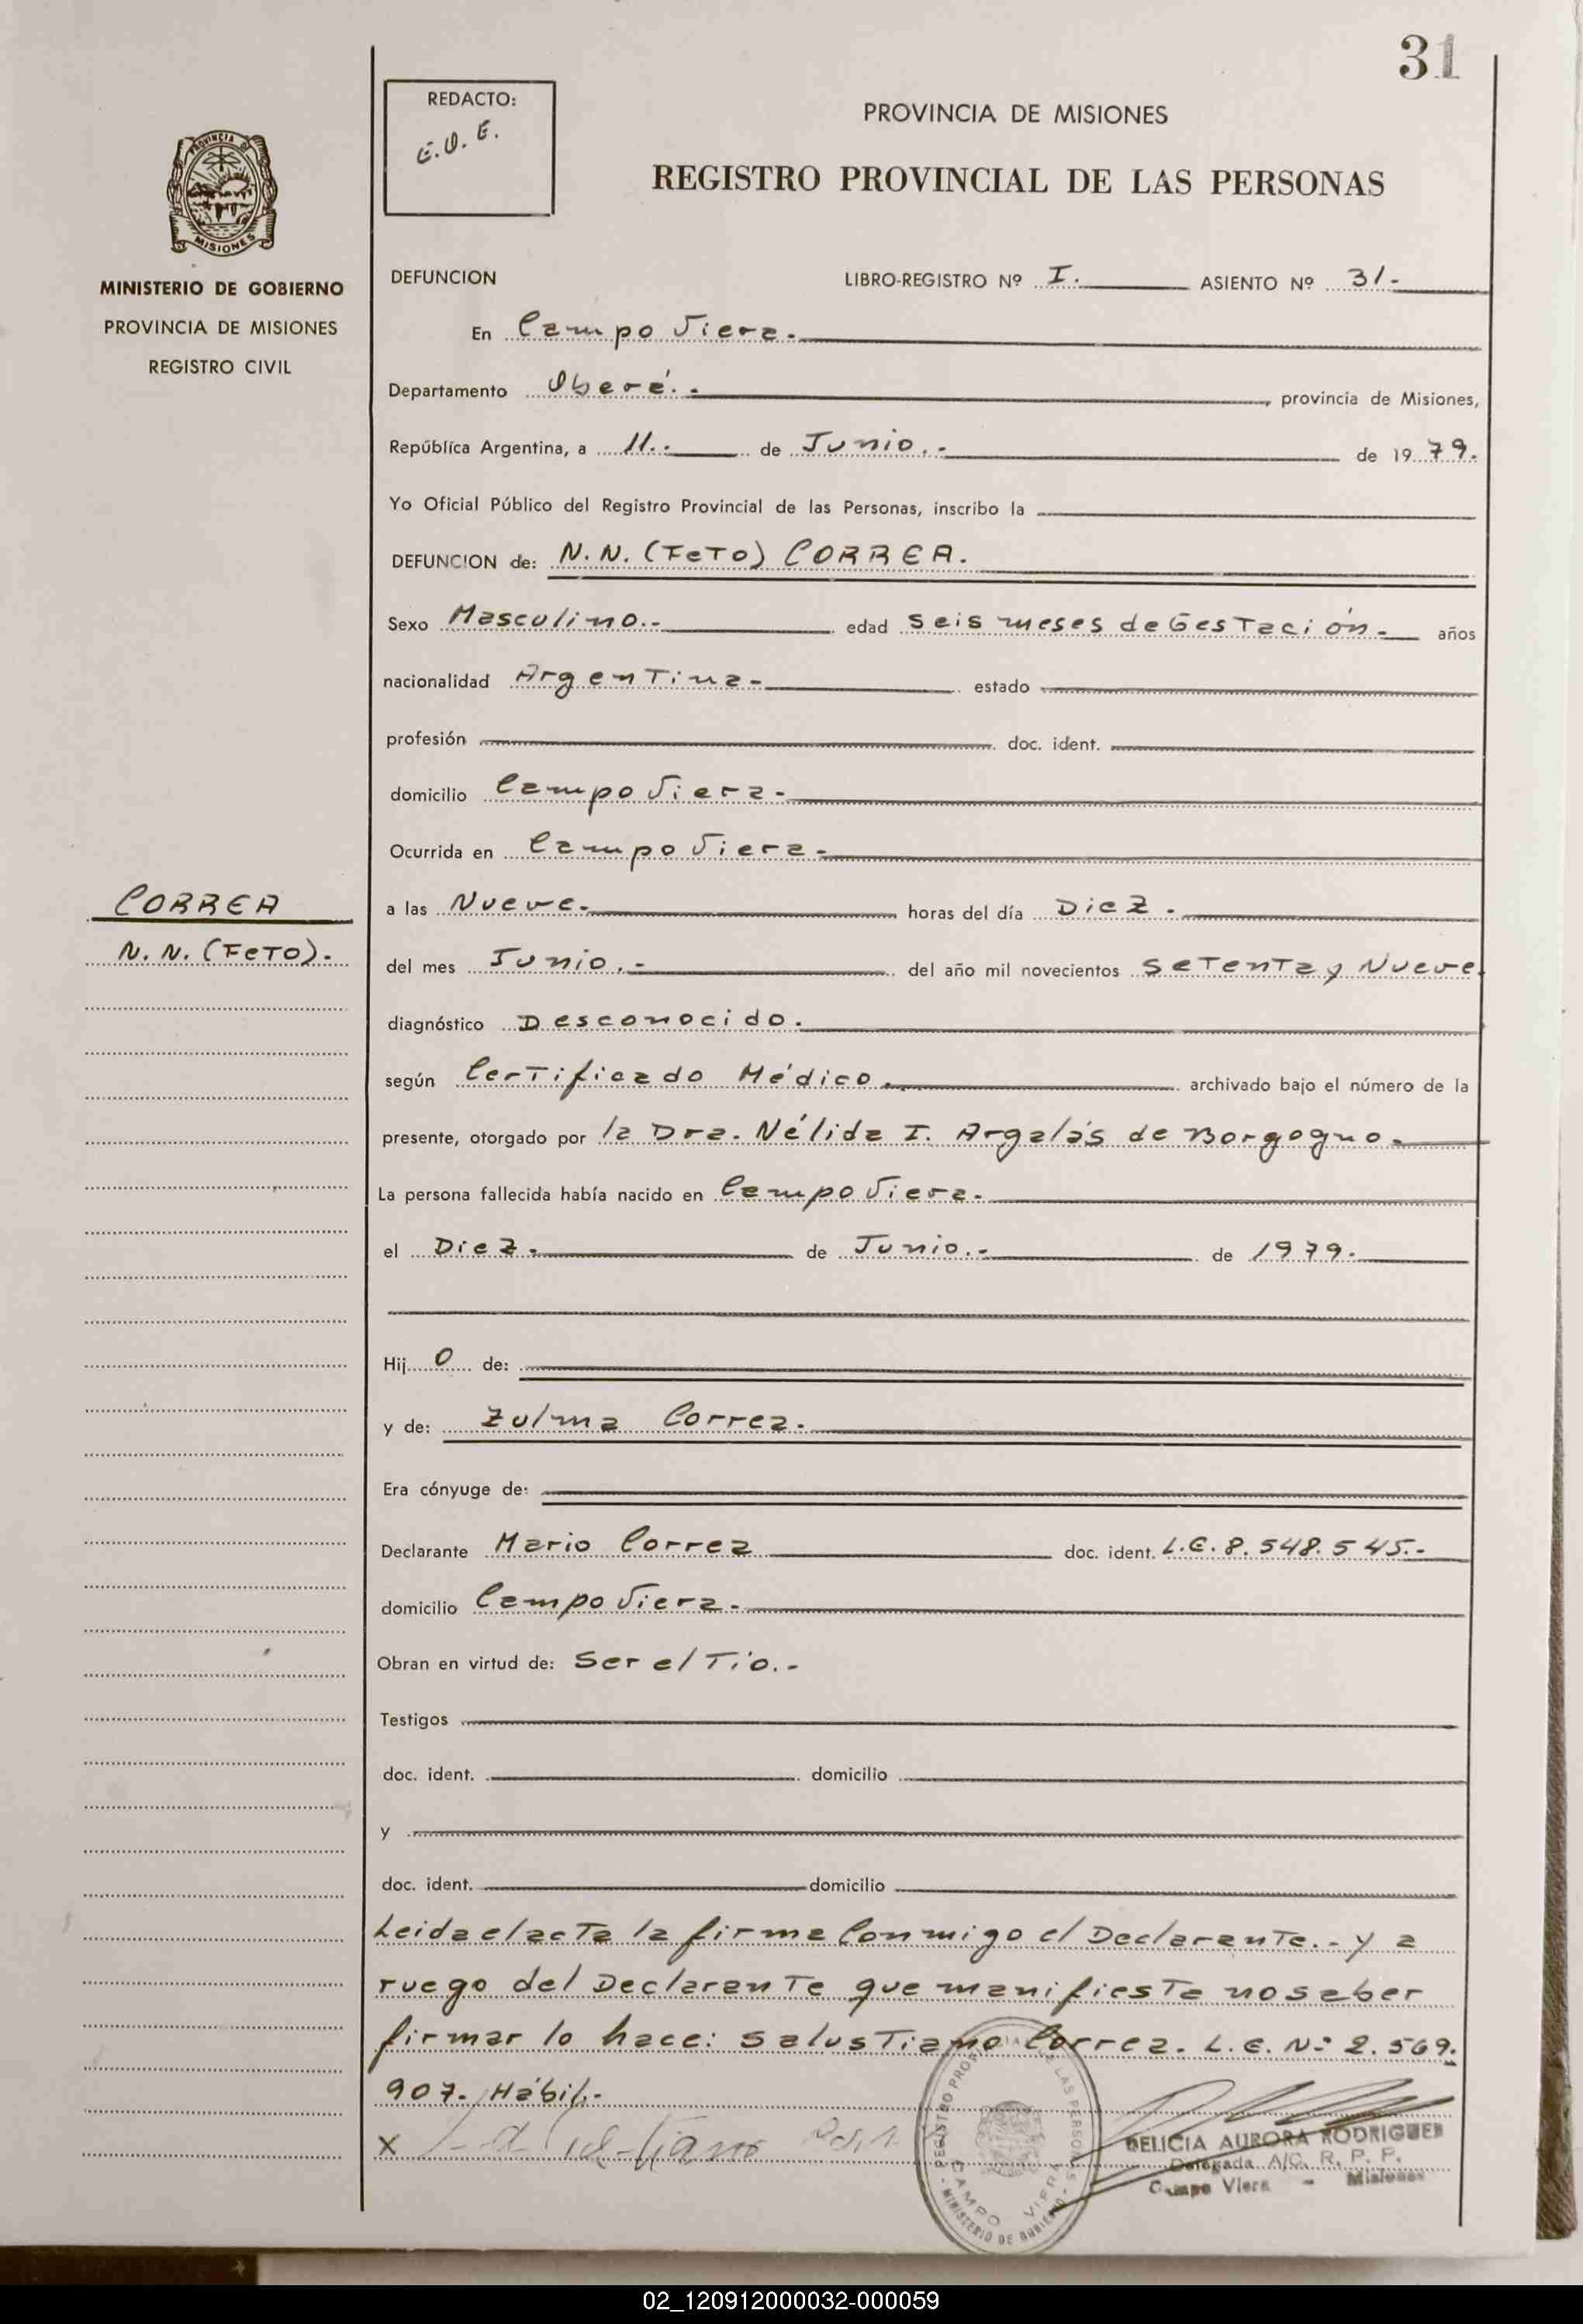 31
REDACTO:
E.O.E.
PROVINCIA DE MISIONES
REGISTRO PROVINCIAL DE LAS PERSONAS
PROVINCIA DE
MISIONES
MINISTERIO DE GOBIERNO
PROVINCIA DE MISIONES
REGISTRO CIVIL
DEFUNCION LIBRO-REGISTRO Nº I. ASIENTO Nº 31-
En Campo Viera.
Departamento Oberá.- provincia de Misiones,
República Argentina, a 11.- de Junio.- de 1979.
Yo Oficial Público del Registro Provincial de las Personas, inscribo la
DEFUNCION de: N.N. (FeTo) CORREA.
Sexo Masculino.- edad Seis meses de GesTación- años
nacionalidad ArgenTina- estado
profesión doc. ident.
domicilio Campo Viera-
Ocurrida en Campo Viera-
CORREA
N.N. (FeTo).
a las Nueve. horas del día Diez.
del mes Junio.- del año mil novecientos SeTenTa y Nueve
diagnóstico Desconocido.
según CerTificado Médico. archivado bajo el número de la
presente, otorgado por la Dra. Nélida I. Argalás de Borgogno.
La persona fallecida había nacido en Campo Viera.
el Diez. de Junio.- de 1979.
Hijo de:
y de: Zulma Correa.
Era cónyuge de:
Declarante Mario Correa doc. ident. L.E. 8.548.545.-
domicilio Campo Viera-
Obran en virtud de: Ser el Tío.-
Testigos
doc. ident. domicilio
y
doc. ident. domicilio
Leida el acTa la firma Conmigo el DeclaranTe.- y a
ruego del DeclaranTe que manifiesTa no saber
firmar lo hace: SalusTiano Correa. L.E. Nº 2.569.
907. Hábil.-
X
REGISTRO PROVINCIAL DE LAS PERSONAS
CAMPO VIERA
- MINISTERIO DE GOBIERNO -
DELICIA AURORA RODRIGUEZ
Delegada A/C. R. P. P.
Campo Viera - Misiones
02_120912000032-000059